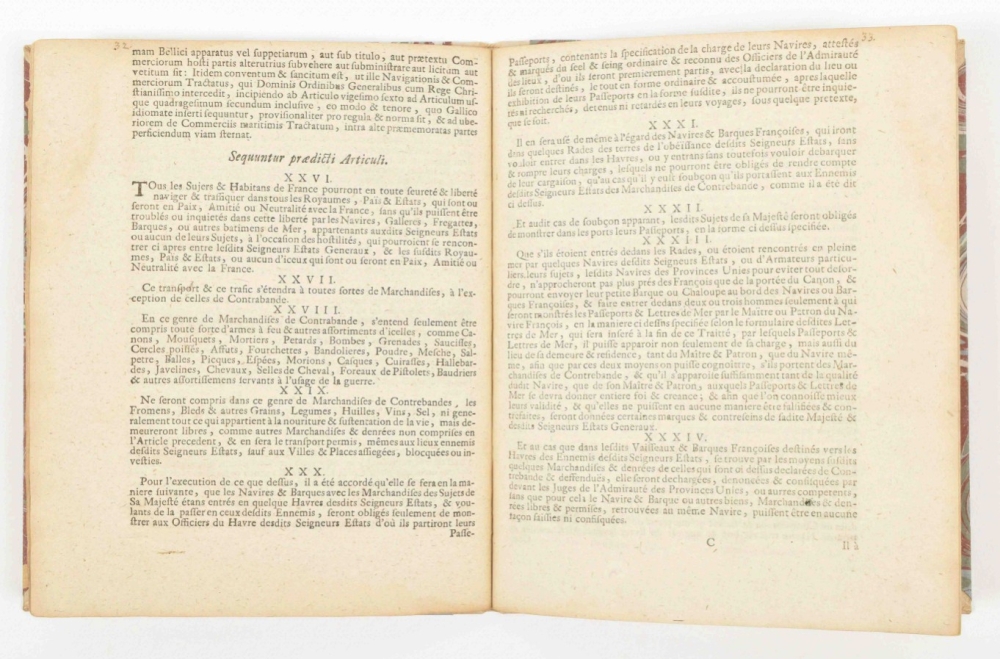 32
mam Bellici apparatus vel suppetiarum, aut sub titulo, aut prætextu Com-
merciorum hosti partis alterutrius subvehere aut subministrare aut licitum aut
vetitum sit: Itidem conventum & sancitum est, ut ille Navigationis & Com-
merciorum Tractatus, qui Dominis Ordinibus Generalibus cum Rege Chri-
stianissimo intercedit, incipiendo ab Articulo vigesimo sexto ad Articulum us-
que quadragesimum secundum inclusive, eo modo & tenore, quo Gallico
idiomate inserti sequuntur, provisionaliter pro regula & norma sit, & ad ube-
riorem de Commerciis maritimis Tractatum, intra alte præmemoratas partes
perficiendum viam sternat.
Sequuntur prædicti Articuli.
XXVI.
TOus les Sujets & Habitans de France pourront en toute seureté & liberté
naviger & traffiquer dans tous les Royaumes, Païs & Estats, qui sont ou
seront en Paix, Amitié ou Neutralité avec la France, sans qu'ils puissent être
troublés ou inquietés dans cette liberté par les Navires, Galleres, Fregattes,
Barques, ou autres batimens de Mer, appartenants auxdits Seigneurs Estats
ou aucun de leurs Sujets, à l'occasion des hostilités, qui pourroient se rencon-
trer ci apres entre lesdits Seigneurs Estats Generaux, & les susdits Royau-
mes, Païs & Estats, ou aucun d'iceux qui sont ou seront en Paix, Amitié ou
Neutralité avec la France.
XXVII.
Ce transport & ce trafic s'étendra à toutes sortes de Marchandises, à l'ex-
ception de celles de Contrabande.
XXVIII.
En ce genre de Marchandises de Contrabande, s'entend seulement être
compris toute sorte d'armes à feu & autres assortiments d'icelles, comme Ca-
nons, Mousquets, Mortiers, Petards, Bombes, Grenades, Saucisses,
Cercles poissés, Affuts, Fourchettes, Bandolieres, Poudre, Mesche, Sal-
petre, Balles, Picques, Espées, Morions, Casques, Cuirasses, Hallebar-
des, Javelines, Chevaux, Selles de Cheval, Foreaux de Pistolets, Baudriers
& autres assortissemens servants à l'usage de la guerre.
XXIX.
Ne seront compris dans ce genre de Marchandises de Contrebandes, les
Fromens, Bleds & autres Grains, Legumes, Huilles, Vins, Sel, ni gene-
ralement tout ce qui appartient à la nouriture & sustentation de la vie, mais de-
meureront libres, comme autres Marchandises & denrées non comprises en
l'Article precedent, & en sera le transport permis, mêmes aux lieux ennemis
desdits Seigneurs Estats, sauf aux Villes & Places assiegées, blocquées ou in-
vesties.
XXX.
Pour l'execution de ce que dessus, il a été accordé qu'elle se fera en la ma-
niere suivante, que les Navires & Barques avec les Marchandises des Sujets de
Sa Majesté étans entrés en quelque Havres desdits Seigneurs Estats, & vou-
lants de la passer en ceux desdits Ennemis, seront obligés seulement de mon-
strer aux Officiers du Havre desdits Seigneurs Estats d'où ils partiront leurs
Passe-
33
Passeports, contenants la specification de la charge de leurs Navires, attestés
& marqués du seel & seing ordinaire & reconnu des Officiers de l'Admirauté
des lieux, d'où ils seront premierement partis, avec la declaration du lieu ou
ils seront destinés, le tout en forme ordinaire & accoustumée, apres laquelle
exhibition de leurs Passeports en la forme susdite, ils ne pourront être inquie-
tés ni recherchés, detenus ni retardés en leurs voyages, sous quelque pretexte,
que se soit.
XXXI.
Il en sera usé de même à l'égard des Navires & Barques Françoises, qui iront
dans quelques Rades des terres de l'obéissance desdits Seigneurs Estats, sans
vouloir entrer dans les Havres, ou y entrans sans toutefois vouloir debarquer
& rompre leurs charges, lesquels ne pourront être obligés de rendre compte
de leur cargaison, qu'au cas qu'il y eust soubçon qu'ils portassent aux Ennemis
desdits Seigneurs Estats des Marchandises de Contrebande, comme il a été dit
ci dessus.
XXXII.
Et audit cas de soubçon apparant, lesdits Sujets de sa Majesté seront obligés
de monstrer dans les ports leurs Passeports, en la forme ci dessus specifiée.
XXXIII.
Que s'ils étoient entrés dedans les Rades, ou étoient rencontrés en pleine
mer par quelques Navires desdits Seigneurs Estats, ou d'Armateurs particu-
liers leurs sujets, lesdits Navires des Provinces Unies pour eviter tout desor-
dre, n'approcheront pas plus prés des François que de la portée du Canon, &
pourront envoyer leur petite Barque ou Chaloupe au bord des Navires ou Bar-
ques Françoises, & faire entrer dedans deux ou trois hommes seulement à qui
seront monstrés les Passeports & Lettres de Mer par le Maître ou Patron du Na-
vire François, en la maniere ci dessus specifiée selon le formulaire desdites Let-
tres de Mer, qui sera inseré à la fin de ce Traité, par lesquels Passeports &
Lettres de Mer, il puisse apparoir non seulement de sa charge, mais aussi du
lieu de sa demeure & residence, tant du Maître & Patron, que du Navire mê-
me, afin que par ces deux moyens on puisse cognoître, s'ils portent des Mar-
chandises de Contrebande, & qu'il s'apparoisse suffisamment tant de la qualité
dudit Navire, que de son Maître & Patron, auxquels Passeports & Lettres de
Mer se devra donner entiere foi & creance; & afin que l'on connoisse mieux
leurs validité, & qu'elles ne puissent en aucune maniere être falsifiées & con-
trefaites, seront données certaines marques & contreseins de sadite Majesté &
desdits Seigneurs Estats Generaux.
XXXIV.
Et au cas que dans lesdits Vaisseaux & Barques Françoises destinés vers les
Havres des Ennemis desdits Seigneurs Estats, se trouve par les moyens susdits
quelques Marchandises & denrées de celles qui sont ci dessus declarées de Con-
trebande & dessendues, elle seront dechargées, denoncées & confisquées par
devant les Juges de l'Admirauté des Provinces Unies, ou autres competens,
sans que pour cela le Navire & Barque ou autres biens, Marchandises & den-
rées libres & permises, retrouvées au même Navire, puissent être en aucune
façon saisies ni confisquées.
C
Il à